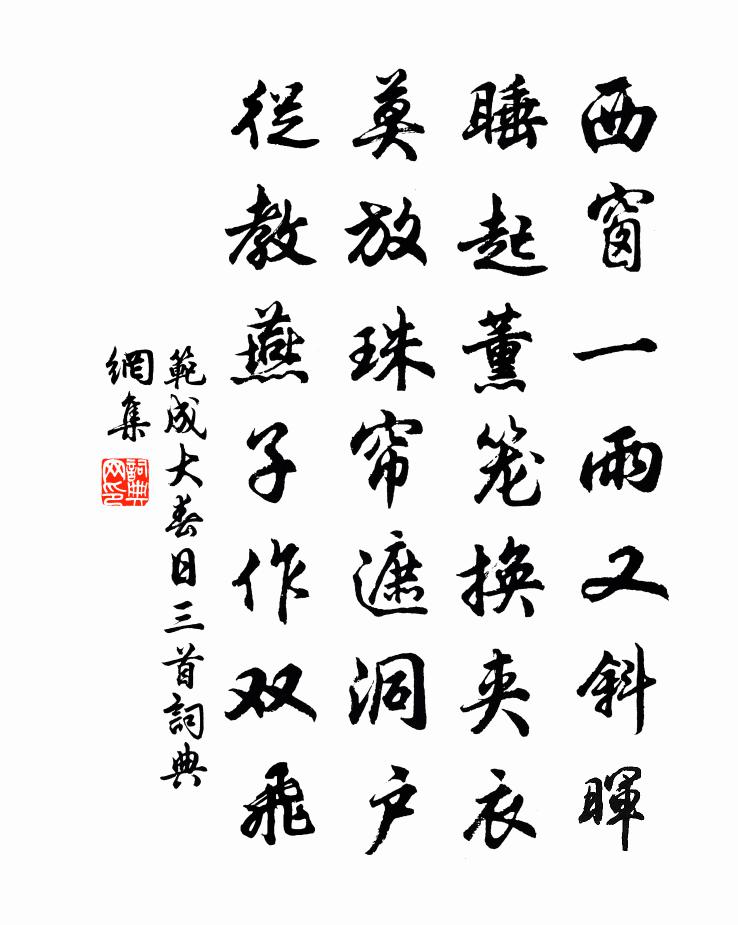 西窗一雨又斜暉
睡起薰笼換夹衣
莫放珠帘遮洞户
從教燕子作双飛
範成大春日三首詞典
網集
詞典
网印